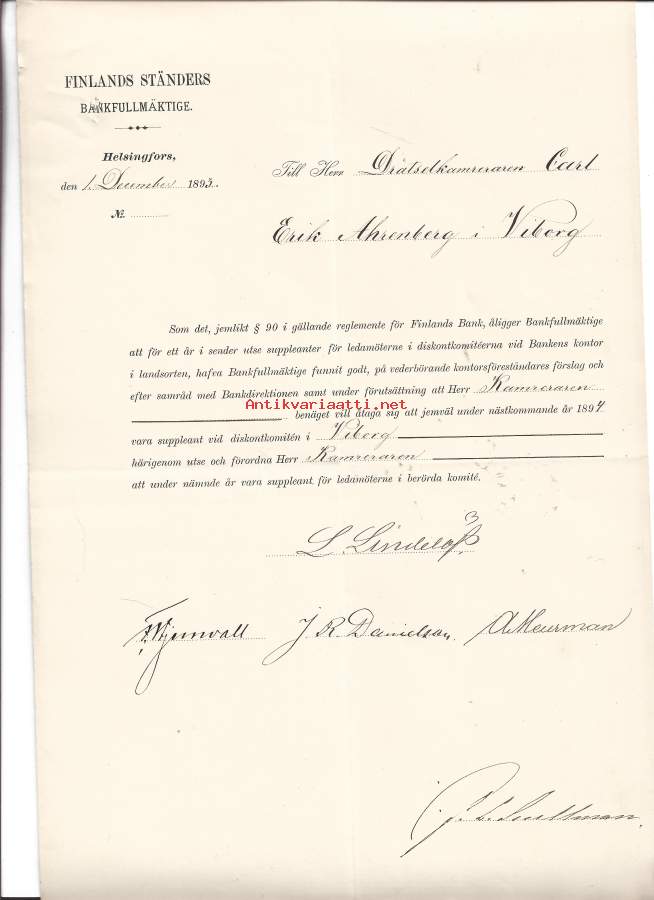 FINLANDS STÄNDERS
BANKFULLMÄKTIGE.
Helsingfors,
den 1 December 1893.
№
Till Herr Drätselkamreraren Carl
Erik Ahrenberg i Viborg
Som det, jemlikt § 90 i gällande reglemente för Finlands Bank, åligger Bankfullmäktige
att för ett år i sender utse suppleanter för ledamöterne i diskontkomitéerna vid Bankens kontor
i landsorten, hafva Bankfullmäktige funnit godt, på vederbörande kontorsföreståndares förslag och
efter samråd med Bankdirektionen samt under förutsättning att Herr Kamreraren
Antikvariaatti.net
benäget vill åtaga sig att jemväl under nästkommande år 1894
vara suppleant vid diskontkomitén i Viborg
härigenom utse och förordna Herr Kamreraren
att under nämnde år vara suppleant för ledamöterne i berörda komité.
L. Lindelöf
J R Danielson. A Meurman